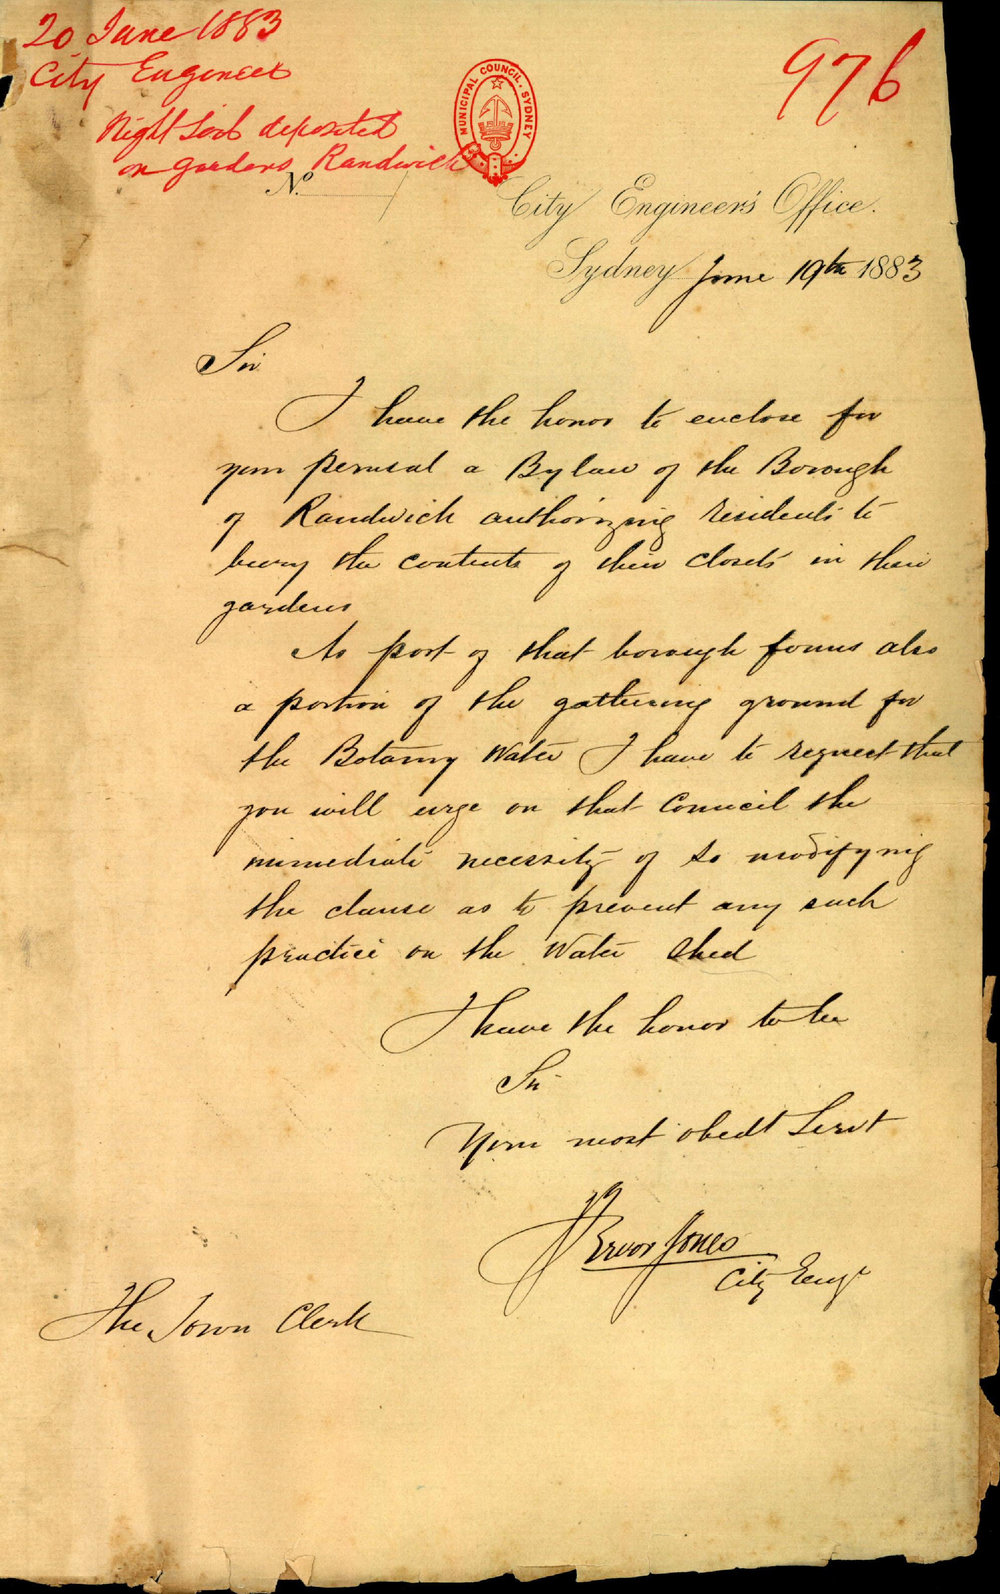 20 June 1883
City Engineer
976
Night Soil deposited
on gardens, Randwick
MUNICIPAL COUNCIL. SYDNEY
No.
City Engineer's Office.
Sydney June 19th 1883
Sir
I have the honor to enclose for
your perusal a Bylaw of the Borough
of Randwick authorizing residents to
bury the contents of their closets in their
gardens
As part of that borough forms also
a portion of the gathering ground for
the Botany Water I have to request that
you will urge on that Council the
immediate necessity of so modifying
the clause as to prevent any such
practice on the Water Shed
I have the honor to be
Sir
Your most obedt Servt
Trevor Jones
City Engr
The Town Clerk